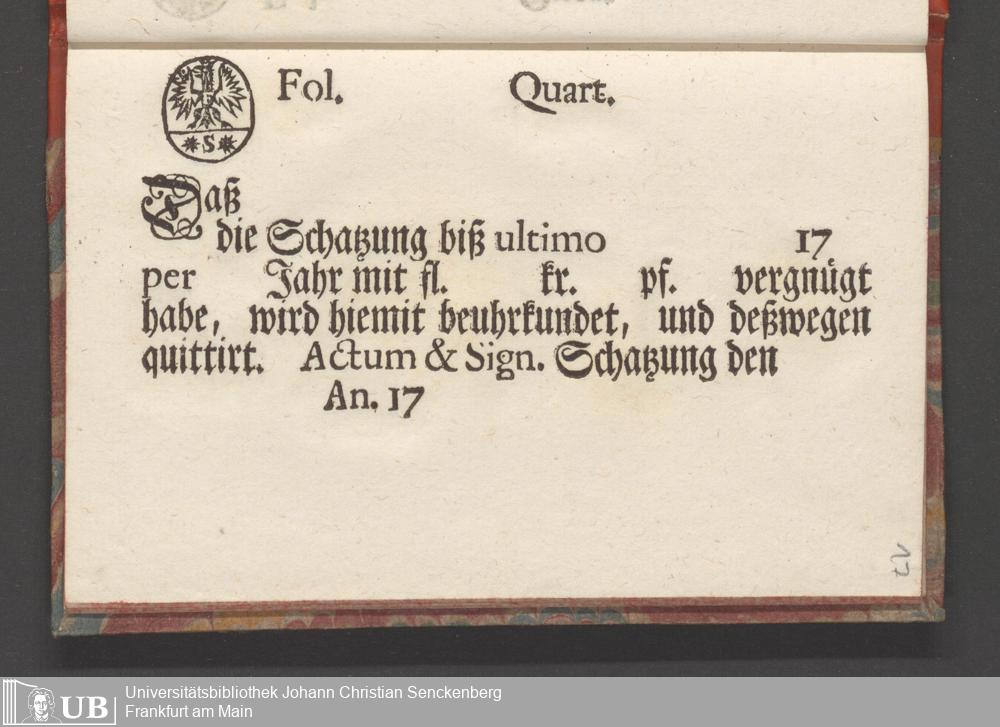 Fol. Quart.
*S*
Daß
die Schatzung biß ultimo 17
per Jahr mit fl. kr. pf. vergnügt
habe, wird hiemit beuhrkundet, und deßwegen
quittirt. Actum & Sign. Schatzung den
An. 17
17
UB Universitätsbibliothek Johann Christian Senckenberg
Frankfurt am Main